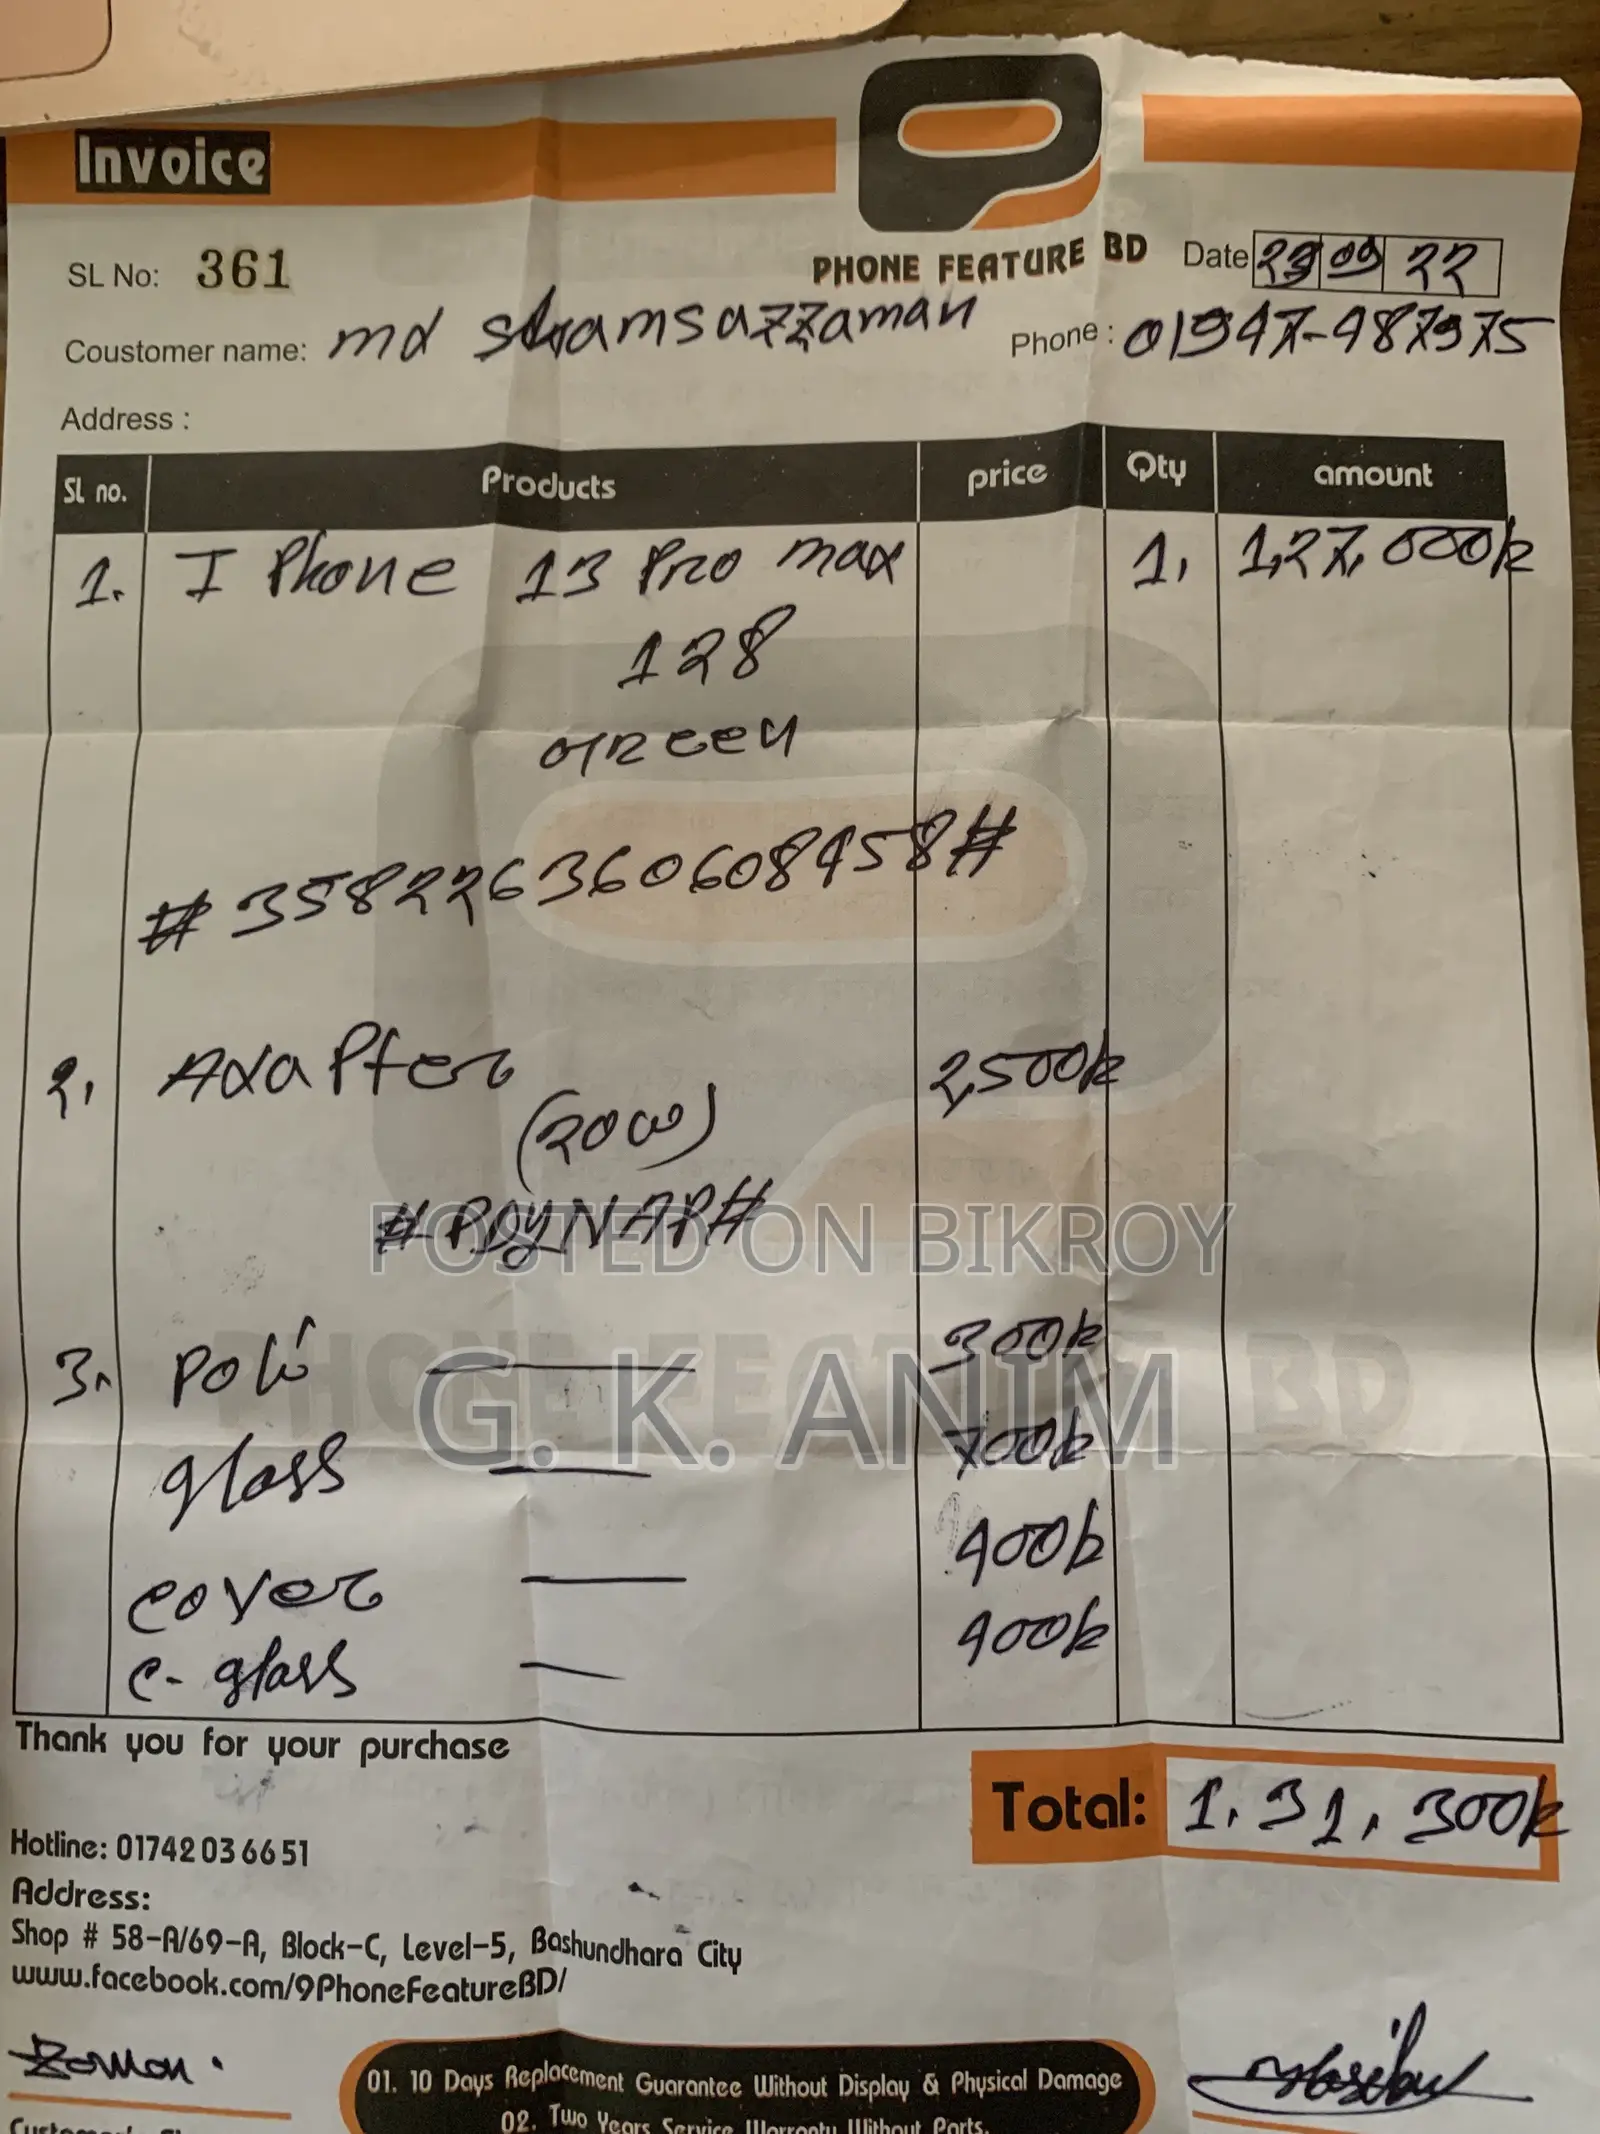 Invoice
PHONE FEATURE BD
SL No: 361
Date 29 09 22
Coustomer name: md shamsazzaman
Phone : 01947-487975
Address :
Sl no. Products price Qty amount
1. I Phone 13 Pro max 1, 1,27,000k
128
Green
#358226360608458#
2, Adapter 2,500k
(20w)
#PDYNAP#
POSTED ON BIKROY
PHONE FEATURE BD
3. Poli 300k
G. K. ANIM
glass 700k
cover 400k
c- glass 400k
Thank you for your purchase
Total: 1,31,300k
Hotline: 01742036651
Address:
Shop # 58-A/69-A, Block-C, Level-5, Bashundhara City
www.facebook.com/9PhoneFeatureBD/
Zaman.
01. 10 Days Replacement Guarantee Without Display & Physical Damage
02. Two Years Service Warranty Without Parts.